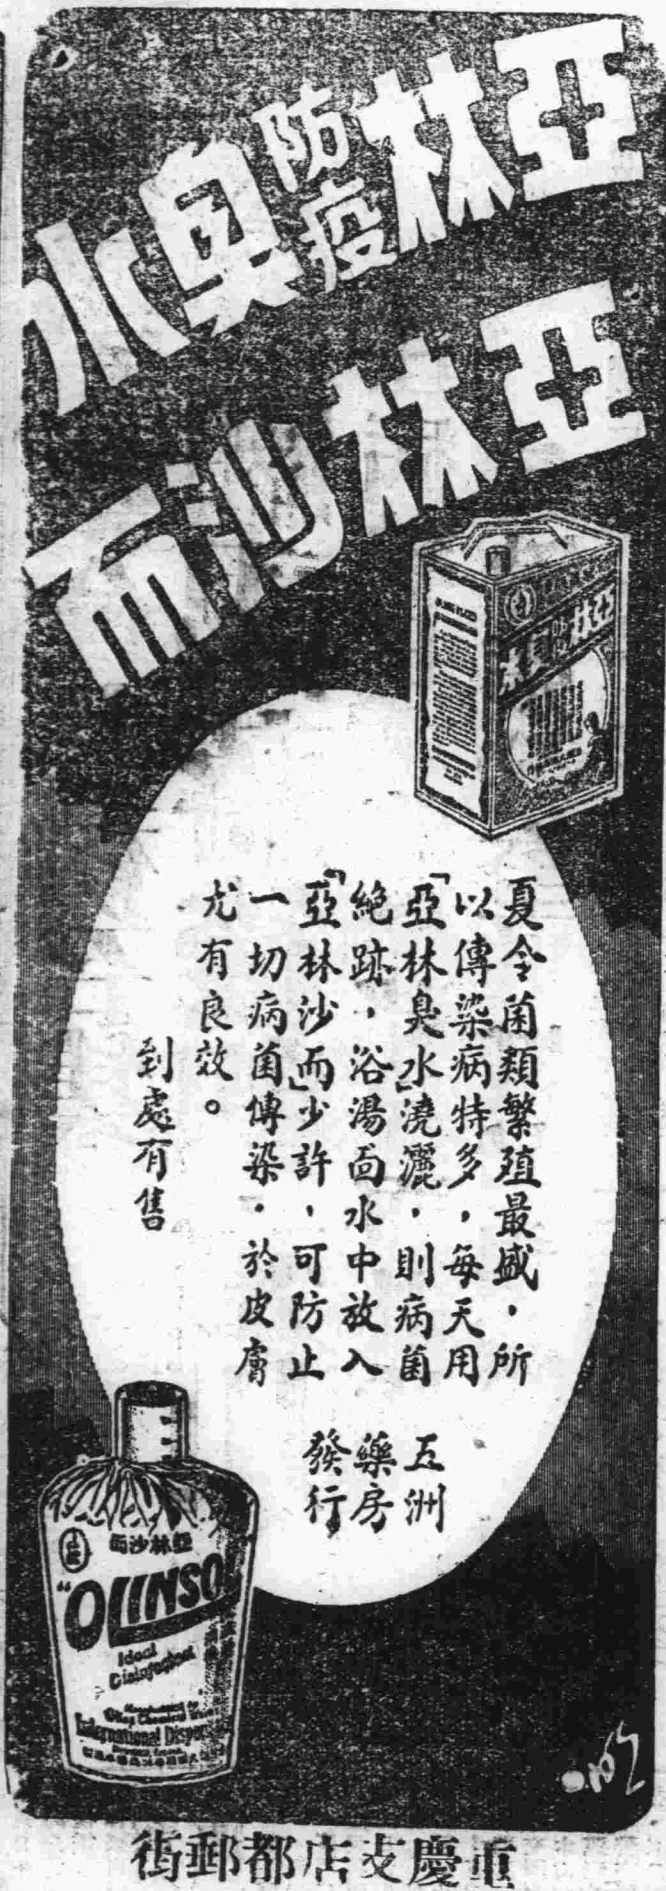 亞林防疫臭水
亞林沙而
亞林防疫臭水
夏令菌類繁殖最盛，所
以傳染病特多，每天用
「亞林臭水」澆灑，則病菌
絕跡，浴湯面水中放入
「亞林沙而」少許，可防止
一切病菌傳染．於皮膚
尤有良效。
到處有售
五洲
藥房
發行
亞林沙而
"OLINSOL
Ideal
Disinfectant
International Dispensary
重慶支店都郵街